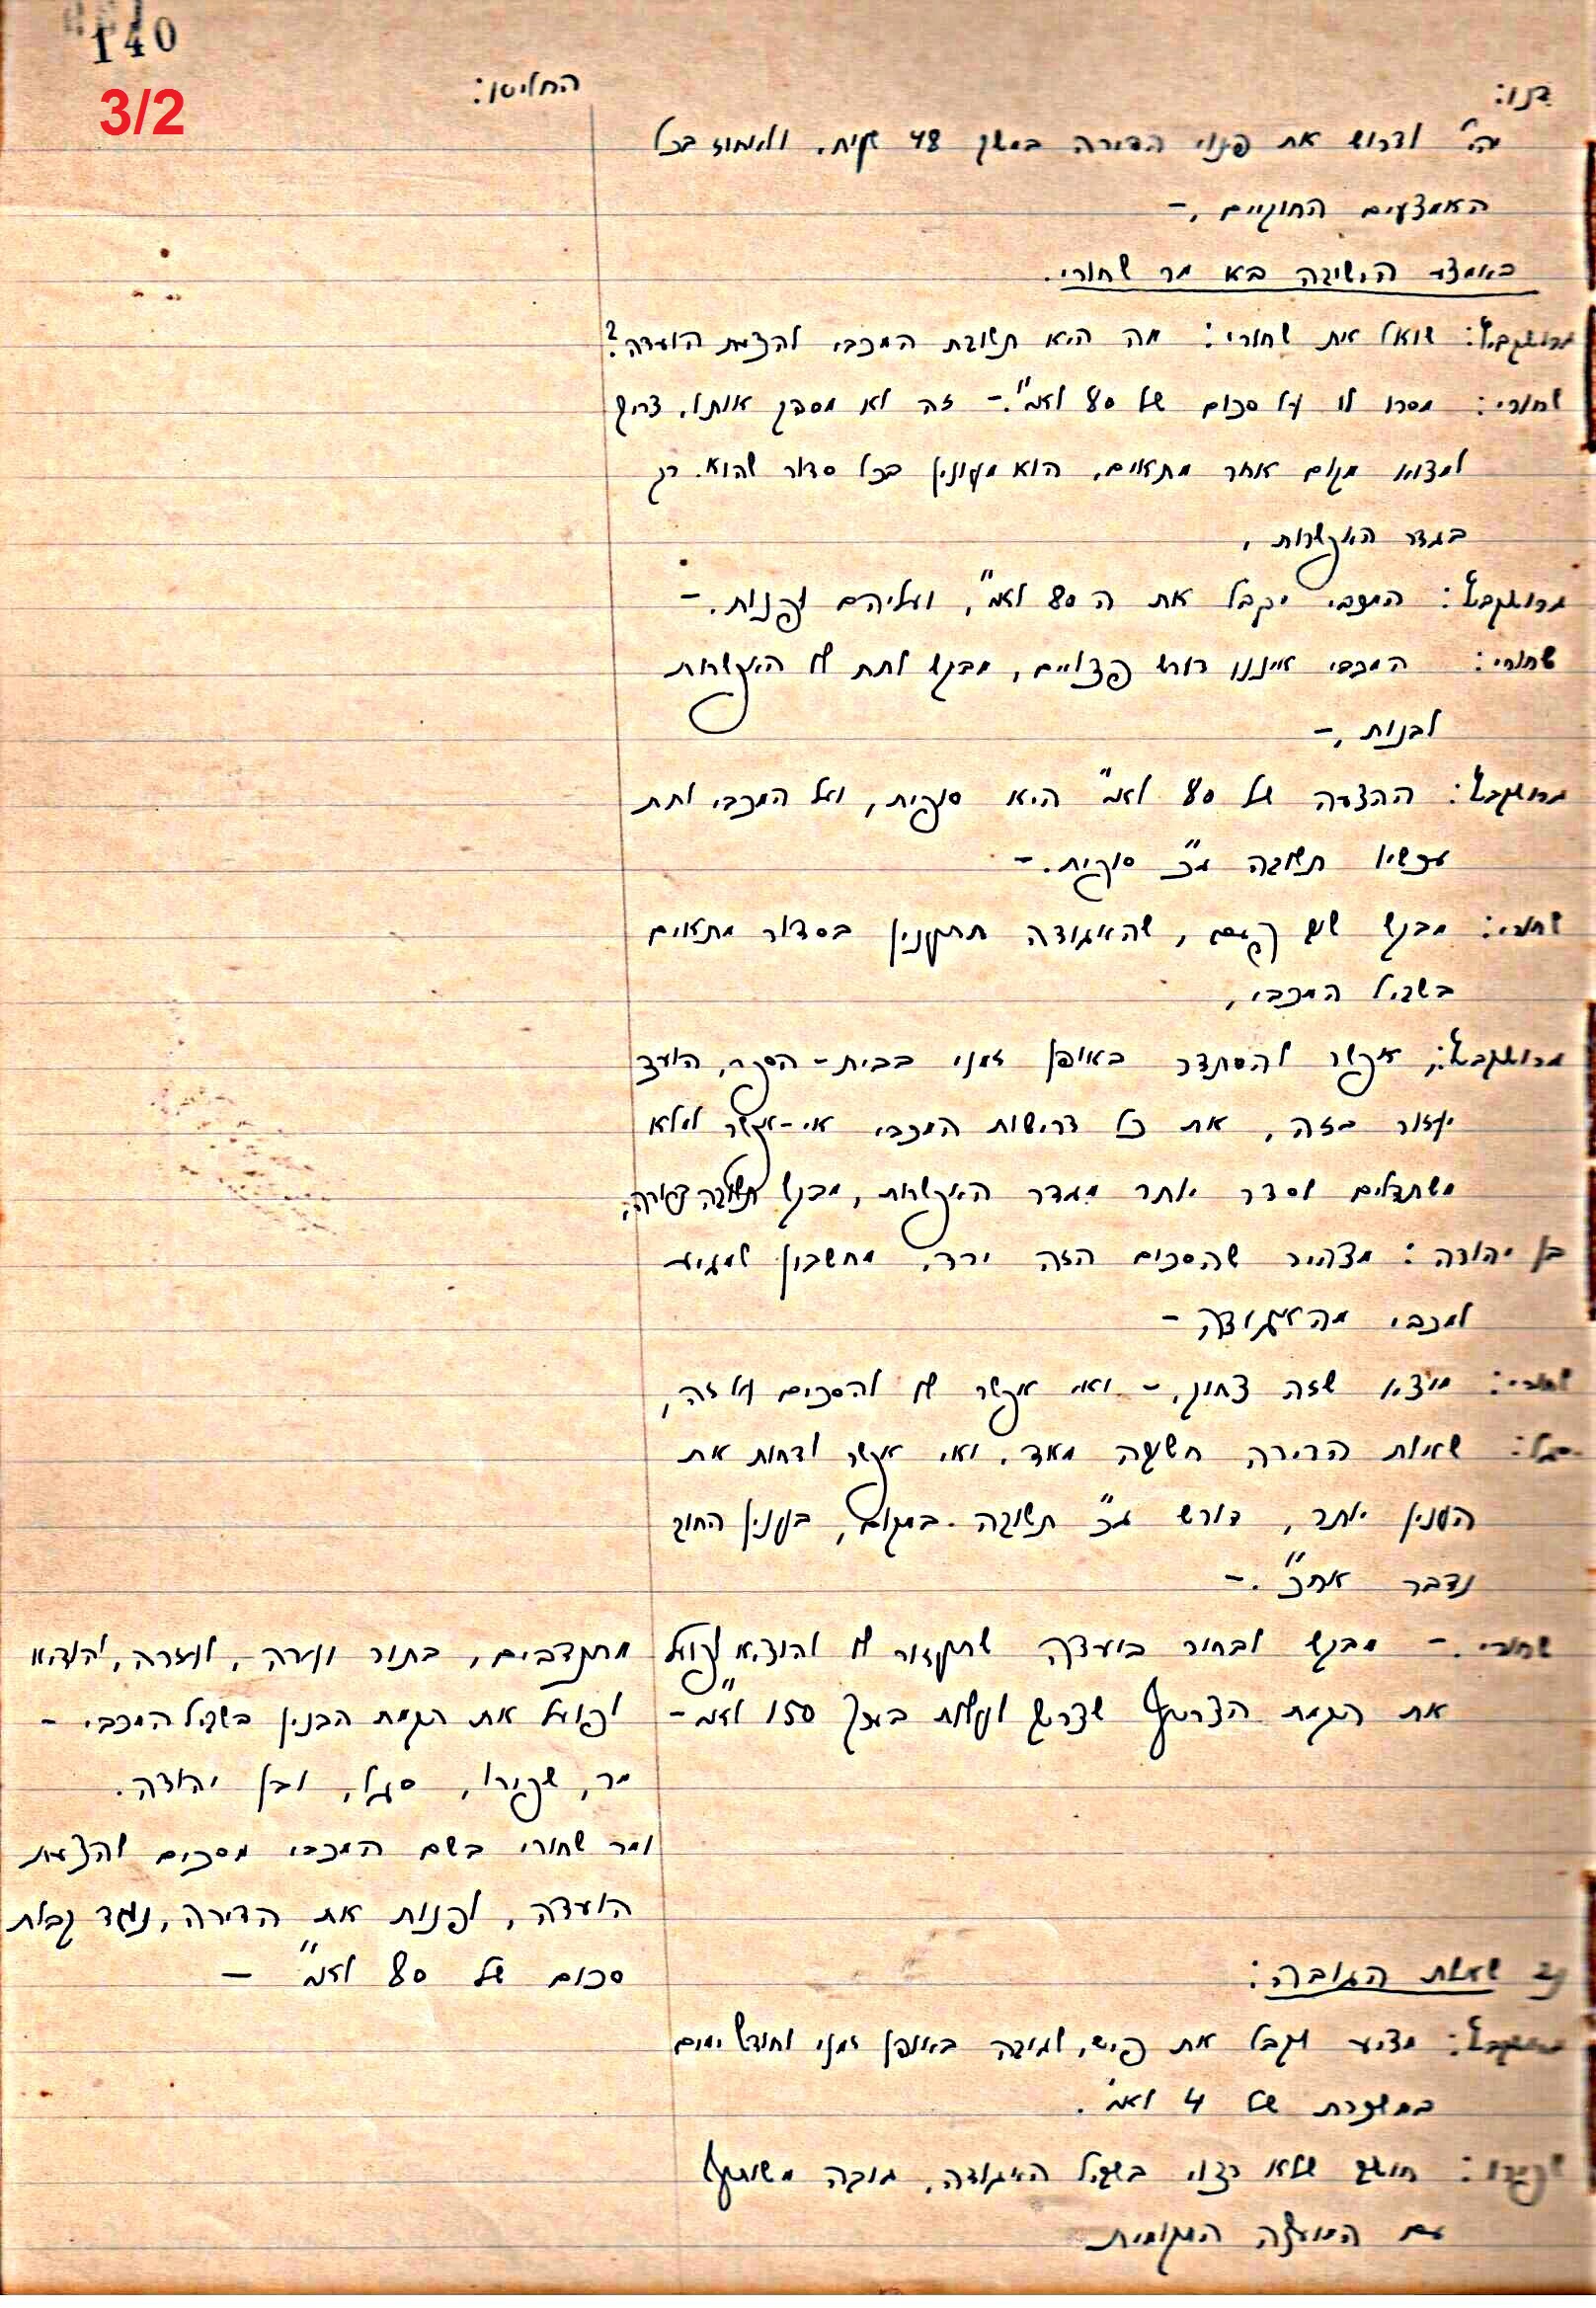 140
3/2
דנו:
החליטו:
ולדרוש את פנוי הדירה במשך 48 שעות. ולאחוז בכל
האמצעים החוקיים. –
באמצע הישיבה בא מר שחורי.
מרושקביץ: שואל את שחורי: מה היא תשובת המכבי להצעת הועדה?
שחורי: מסרו לו על סכום של 80 לא"י. – זה לא מספק אותו. צריך
למצוא מקום אחר מתאים. הוא מעונין בכל סדור שהוא. רק
בגדר האפשרות.
מרושקביץ: המכבי יקבל את ה 80 לא"י, ועליהם לפנות. –
שחורי: המכבי איננו דורש פצויים, מבקש לתת לו האפשרות
לבנות. –
מרושקביץ: ההצעה של 80 לא"י היא סופית, ועל המכבי לתת
עכשיו תשובה ג"כ סופית. –
שחורי: מבקש עוד פעם, שהאגודה תתענין בסדור מתאים
בשביל המכבי.
מרושקביץ: אפשר להסתדר באופן זמני בבית-הספר, הועד
יעזור בזה, את כל דרישות המכבי אי-אפשר למלא
משתדלים לסדר יותר מגדר האפשרות, מבקש תשובה ברורה.
בן יהודה: מצהיר שהסכום הזה ירד מחשבון המגיע
למכבי מהאגודה –
שחורי: מוצא שזה צחוק. – ואי אפשר לו להסכים על זה.
סגל: שאלת הדירה חשובה מאד. ואי אפשר לדחות את
הענין יותר, דורש ג"כ תשובה במקום, בענין החוב
נדבר אח"כ. –
שחורי. – מבקש לבחור בועדה שתעזור לו להוציא לפועל
את הקמת הצריף שצריך לעלות בערך 150 לא"י –
מתנדבים, בתור ועדה, לעזרה, להוציא
לפועל את הקמת הבנין בשביל המכבי. –
מר, שפירו, סגל, ובן יהודה.
ומר שחורי בשם המכבי מסכים להצעת
הועדה, לפנות את הדירה, נגד קבלת
סכום של 80 לא"י –
שאלת הגובה:
מרושקביץ: מציע לקבל את פיש, לגובה באופן זמני לחודש ימים
במשכרת של 4 לא"י.
שפירו: חושב שלא רצוי בשביל האגודה, גובה משותף
עם המועצה המקומית